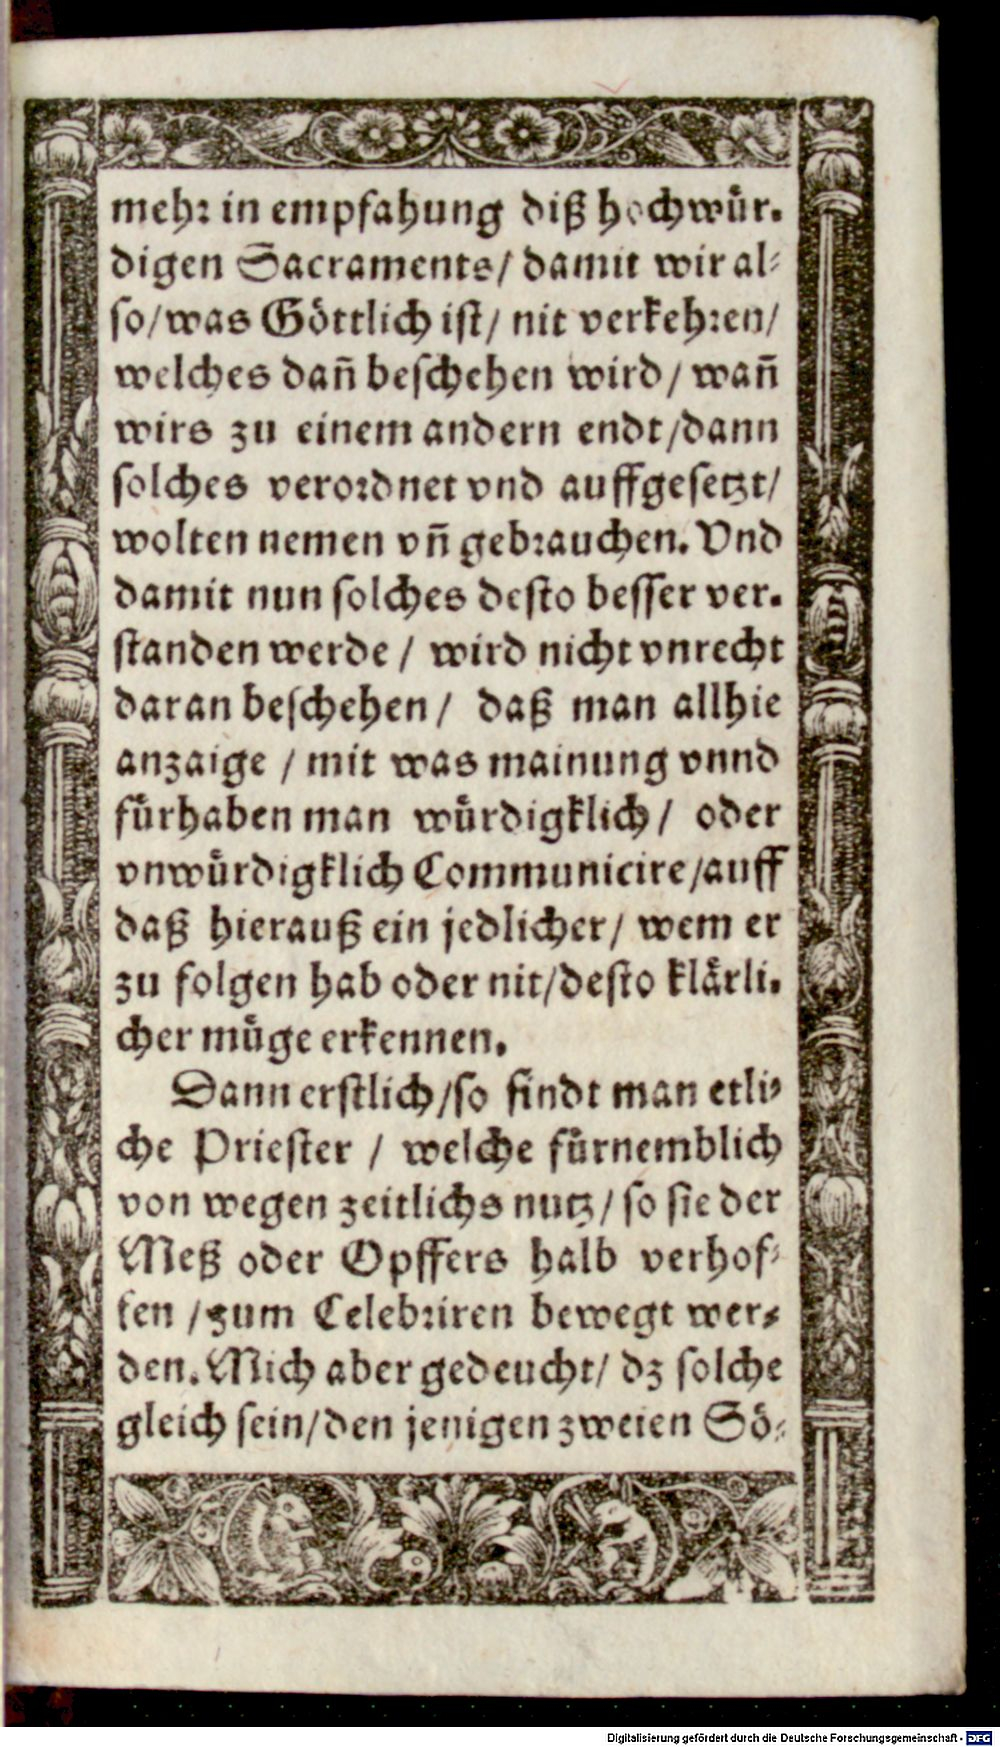 mehr in empfahung diß hochwür-
digen Sacraments/ damit wir al-
so/was Göttlich ist/ nit verkehren/
welches dañ beschehen wird/ wañ
wirs zu einem andern endt/dann
solches verordnet vnd auffgesetzt/
wolten nemen vñ gebrauchen. Vnd
damit nun solches desto besser ver-
standen werde / wird nicht vnrecht
daran beschehen/ daß man allhie
anzaige / mit was mainung vnnd
fürhaben man würdigklich/ oder
vnwürdigklich Communicire/auff
daß hierauß ein jedlicher/ wem er
zu folgen hab oder nit/desto klärli-
cher müge erkennen.
Dann erstlich/so findt man etli-
che Priester / welche fürnemblich
von wegen zeitlichs nutz/ so sie der
Meß oder Opffers halb verhof-
fen /zum Celebriren bewegt wer-
den. Mich aber gedeucht/ dz solche
gleich sein/den jenigen zweien Sö-
Digitalisierung gefördert durch die Deutsche Forschungsgemeinschaft - DFG